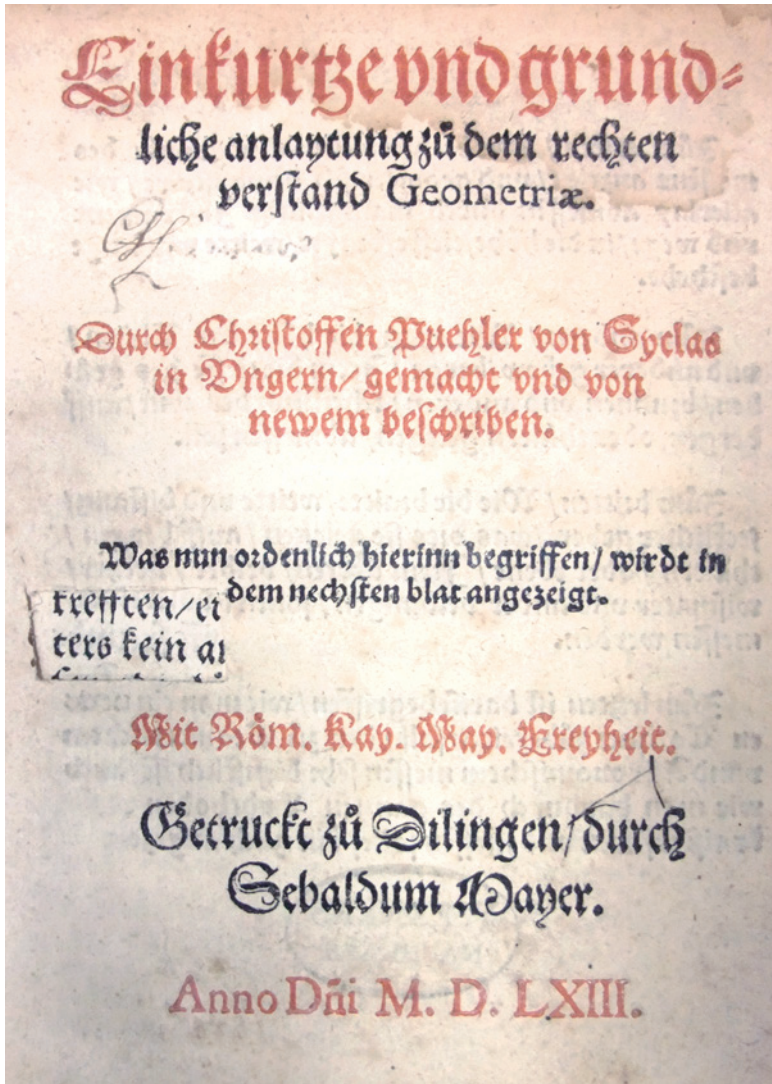 Ein kurtze vnd grund-
liche anlaytung zů dem rechten
verstand Geometriæ.
Durch Christoffen Puehler von Syclas
in Vngern/ gemacht vnd von
newem beschriben.
Was nun ordenlich hierinn begriffen/ wirdt in
dem nechsten blat angezeigt.
trefften/ ei
ters kein a
Mit Röm. Kay. May. Freyheit.
Getruckt zů Dilingen/ durch
Sebaldum Mayer.
Anno Dñi M. D. LXIII.